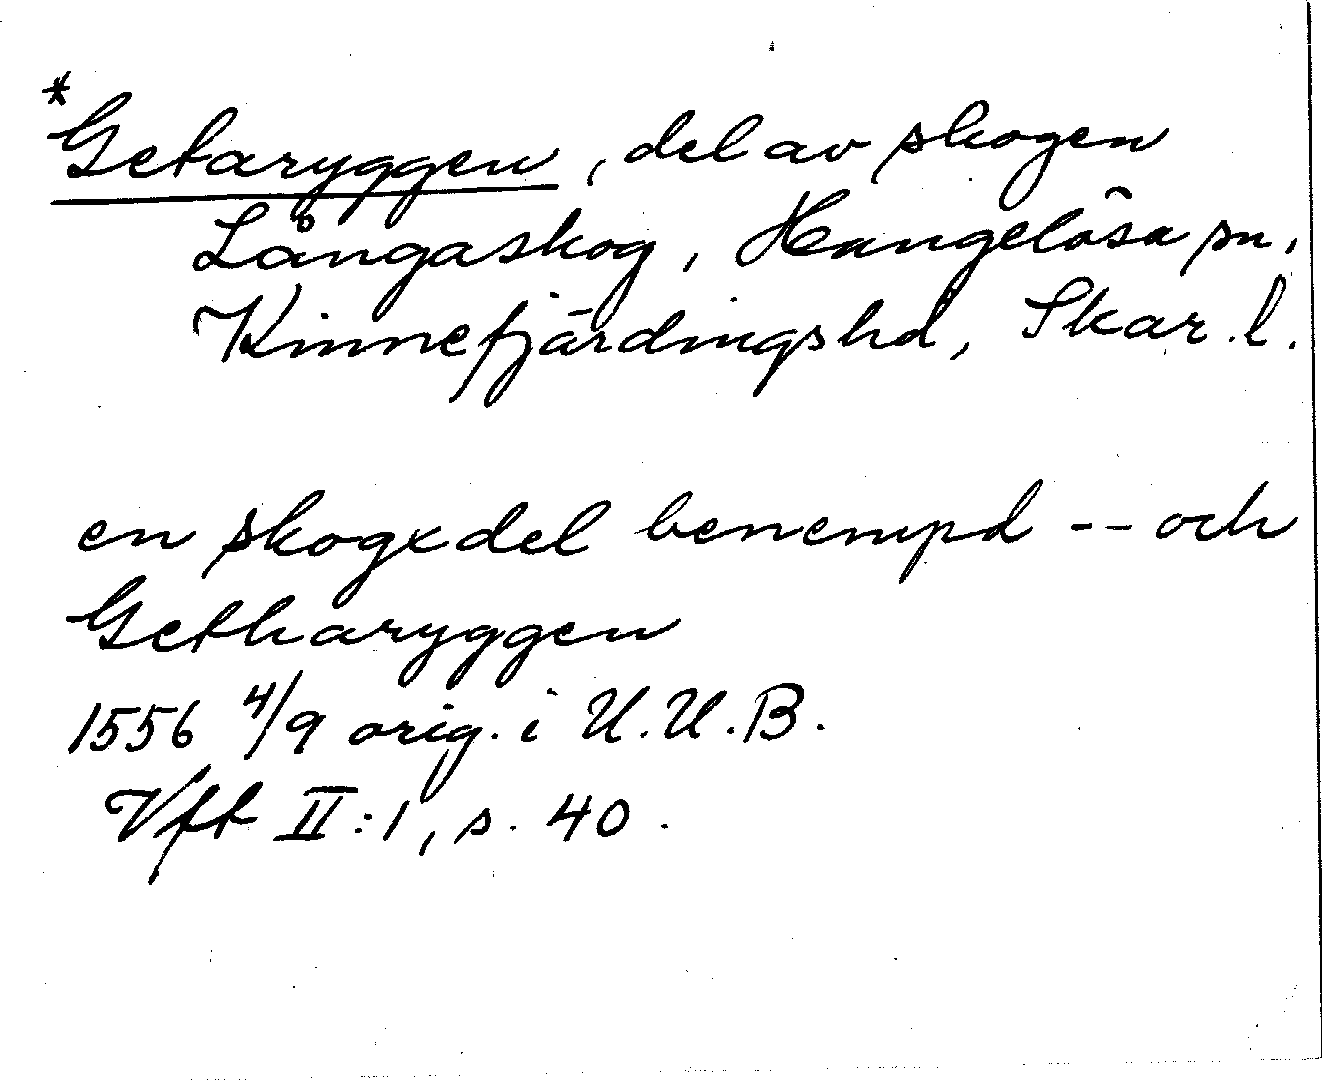 *
Getaryggen, del av skogen
Långaskog, Hangelösa sn,
Kinnefjärdingshd, Skar. l.
en skogxdel benempd -- och
Getharyggen
1556 4/9 orig. i U.U.B.
Vft II:1, s. 40.